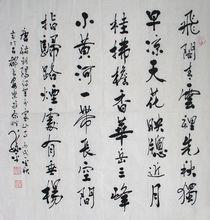 飛閣青雲裡先秋獨
早涼天花映窗近月
桂拂檐香華岳三峰
小黃河一帶長空間
指歸路煙處有垂楊